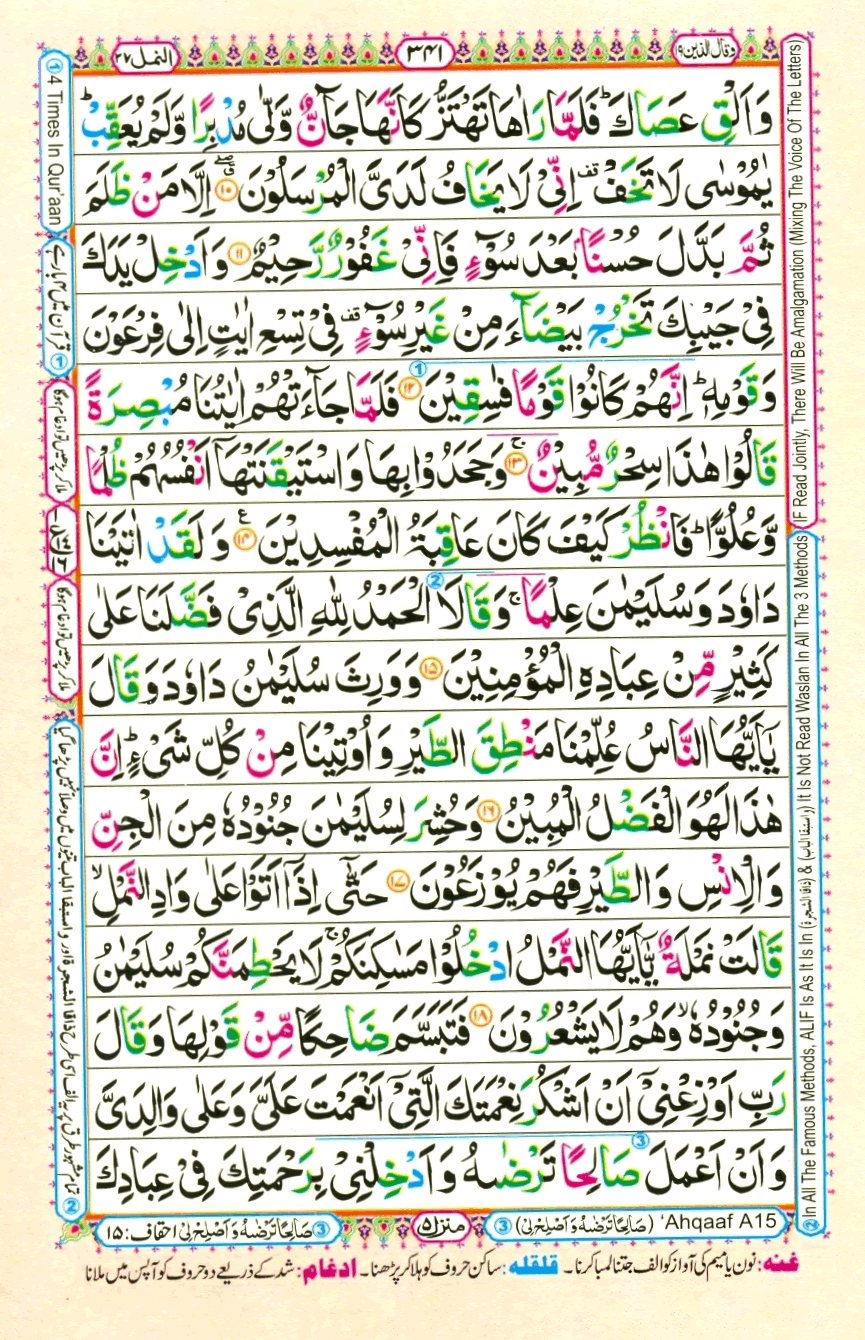 وقال الذین ۱۹
۳۴۱
النمل ۲۷
وَاَلۡقِ عَصَاكَ ؕ فَلَمَّا رَاٰهَا تَهۡتَزُّ كَاَنَّهَا جَآنٌّ وَّلّٰى مُدۡبِرًا وَّلَمۡ يُعَقِّبۡ ؕ
يٰمُوۡسٰى لَا تَخَفۡ قف اِنِّىۡ لَا يَخَافُ لَدَىَّ الۡمُرۡسَلُوۡنَ ۱۰ اِلَّا مَنۡ ظَلَمَ
ثُمَّ بَدَّلَ حُسۡنًۢا بَعۡدَ سُوۡٓءٍ فَاِنِّىۡ غَفُوۡرٌ رَّحِيۡمٌ ۱۱ وَاَدۡخِلۡ يَدَكَ
فِىۡ جَيۡبِكَ تَخۡرُجۡ بَيۡضَآءَ مِنۡ غَيۡرِ سُوۡٓءٍ قف فِىۡ تِسۡعِ اٰيٰتٍ اِلٰى فِرۡعَوۡنَ
وَقَوۡمِهٖ ؕ اِنَّهُمۡ كَانُوۡا قَوۡمًا فٰسِقِيۡنَ ۱۲ فَلَمَّا جَآءَتۡهُمۡ اٰيٰتُنَا مُبۡصِرَةً
قَالُوۡا هٰذَا سِحۡرٌ مُّبِيۡنٌ ۱۳ وَجَحَدُوۡا بِهَا وَاسۡتَيۡقَنَتۡهَاۤ اَنۡفُسُهُمۡ ظُلۡمًا
وَّعُلُوًّا ؕ فَانۡظُرۡ كَيۡفَ كَانَ عَاقِبَةُ الۡمُفۡسِدِيۡنَ ۱۴ وَلَقَدۡ اٰتَيۡنَا
دَاوٗدَ وَسُلَيۡمٰنَ عِلۡمًا ۚ وَقَالَا الۡحَمۡدُ لِلّٰهِ الَّذِىۡ فَضَّلَنَا عَلٰى
كَثِيۡرٍ مِّنۡ عِبَادِهِ الۡمُؤۡمِنِيۡنَ ۱۵ وَوَرِثَ سُلَيۡمٰنُ دَاوٗدَ وَقَالَ
يٰۤاَيُّهَا النَّاسُ عُلِّمۡنَا مَنۡطِقَ الطَّيۡرِ وَاُوۡتِيۡنَا مِنۡ كُلِّ شَىۡءٍ ؕ اِنَّ
هٰذَا لَهُوَ الۡفَضۡلُ الۡمُبِيۡنُ ۱۶ وَحُشِرَ لِسُلَيۡمٰنَ جُنُوۡدُهٗ مِنَ الۡجِنِّ
وَالۡاِنۡسِ وَالطَّيۡرِ فَهُمۡ يُوۡزَعُوۡنَ ۱۷ حَتّٰٓى اِذَاۤ اَتَوۡا عَلٰى وَادِ النَّمۡلِ ۙ
قَالَتۡ نَمۡلَةٌ يّٰۤاَيُّهَا النَّمۡلُ ادۡخُلُوۡا مَسٰكِنَكُمۡ ۚ لَا يَحۡطِمَنَّكُمۡ سُلَيۡمٰنُ
وَجُنُوۡدُهٗ ۙ وَهُمۡ لَا يَشۡعُرُوۡنَ ۱۸ فَتَبَسَّمَ ضَاحِكًا مِّنۡ قَوۡلِهَا وَقَالَ
رَبِّ اَوۡزِعۡنِىۡۤ اَنۡ اَشۡكُرَ نِعۡمَتَكَ الَّتِىۡۤ اَنۡعَمۡتَ عَلَىَّ وَعَلٰى وَالِدَىَّ
وَاَنۡ اَعۡمَلَ صَالِحًا تَرۡضٰٮهُ وَاَدۡخِلۡنِىۡ بِرَحۡمَتِكَ فِىۡ عِبَادِكَ
IF Read Jointly, There Will Be Amalgamation (Mixing The Voice Of The Letters)
② In All The Famous Methods, ALIF Is As It Is In (ذاقا الشجرة) & (واستبقا الباب) It Is Not Read Waslan In All The 3 Methods
① 4 Times In Qur'aan
قرآن میں ۴ بار ہے ①
ملا کر پڑھیں تو ادغام ہوگا
ملا کر پڑھیں تو ادغام ہوگا
③ (صَالِحًا تَرۡضٰٮهُ وَاَصۡلِحۡ لِىۡ) 'Ahqaaf A15
منزل ۵
③ صَالِحًا تَرۡضٰٮهُ وَاَصۡلِحۡ لِىۡ احقاف: ۱۵
غنه: نون یا میم کی آواز کو الف جتنا لمبا کرنا۔ قلقله: ساکن حروف کو ہلا کر پڑھنا۔ ادغام: شد کے ذریعے دو حروف کو آپس میں ملانا